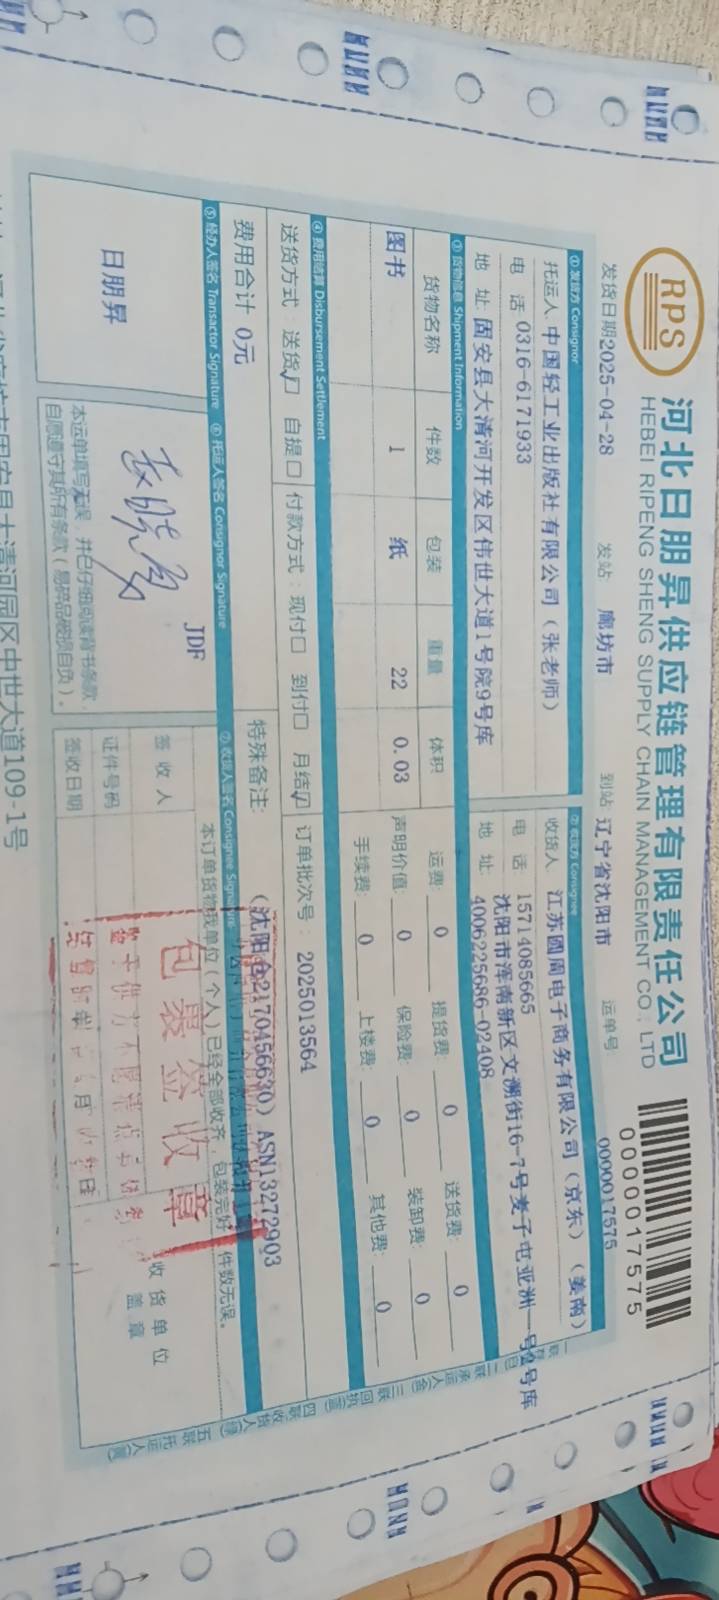 RPS
河北日朋昇供应链管理有限责任公司
HEBEI RIPENG SHENG SUPPLY CHAIN MANAGEMENT CO., LTD
0000017575
发货日期2025-04-28 发站 廊坊市 到站 辽宁省沈阳市 运单号 0000017575
① 发货方 Consignor
托运人 中国轻工业出版社有限公司（张老师）
电 话 0316-6171933
地 址 固安县大清河开发区伟世大道1号院9号库
② 收货方 Consignee
收货人 江苏圆周电子商务有限公司（京东）（姜南）
电 话 15714085665
地 址 沈阳市浑南新区文溯街16-7号麦子屯亚洲一号2号库
4006225686-02408
③ 货物信息 Shipment Information
货物名称 件数 包装 重量 体积
图书 1 纸 22 0.03
运费: 0 提货费: 0 送货费: 0
声明价值: 0 保险费: 0 装卸费: 0
手续费: 0 上楼费: 0 其他费: 0
④ 费用结算 Disbursement Settlement
送货方式：送货☑ 自提□ 付款方式：现付□ 到付□ 月结☑ 订单批次号：2025013564
费用合计 0元 特殊备注: (沈阳仓2170456630) ASN13272903
⑤ 经办人签名 Transactor Signature
日朋昇
⑥ 托运人签名 Consignor Signature
JDF
本运单填写无误，并已仔细阅读背书条款，
自愿遵守其所有条款（易碎品破损自负）。
⑦ 收货人签名 Consignee Signature
本订单货物我单位（个人）已经全部收齐，包装完好，件数无误。
签 收 人
证件号码
签收日期
收 货 单 位
盖 章
包裹签收章
中世大道109-1号